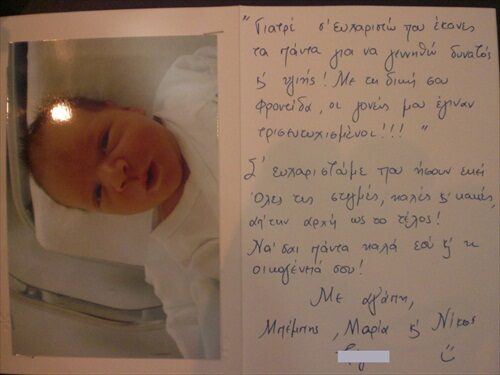 "Γιατρέ σ' ευχαριστώ που έκανες
τα πάντα για να γεννηθώ δυνατός
κ' υγιής! Με τη δική σου
φροντίδα, οι γονείς μου έγιναν
τρισευτυχισμένοι!!!"
Σ' ευχαριστούμε που ήσουν εκεί
όλες τις στιγμές, καλές κ' κακές,
απ' την αρχή ως το τέλος!
Να' σαι πάντα καλά εσύ κ' η
οικογένειά σου!
Με αγάπη,
Μπέμπης, Μαρία κ' Νίκος